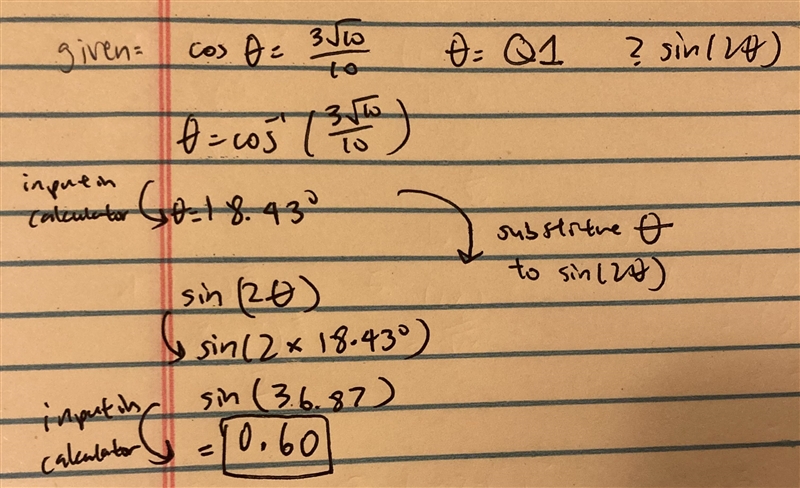 given= cos θ = 3√10/10 θ = Q1 ? sin(2θ)
θ = cos⁻¹ (3√10/10)
input in calculator θ=18.43°
substitue θ to sin(2θ)
sin(2θ)
sin(2 × 18.43°)
sin(36.87)
input in calculator = 0.60